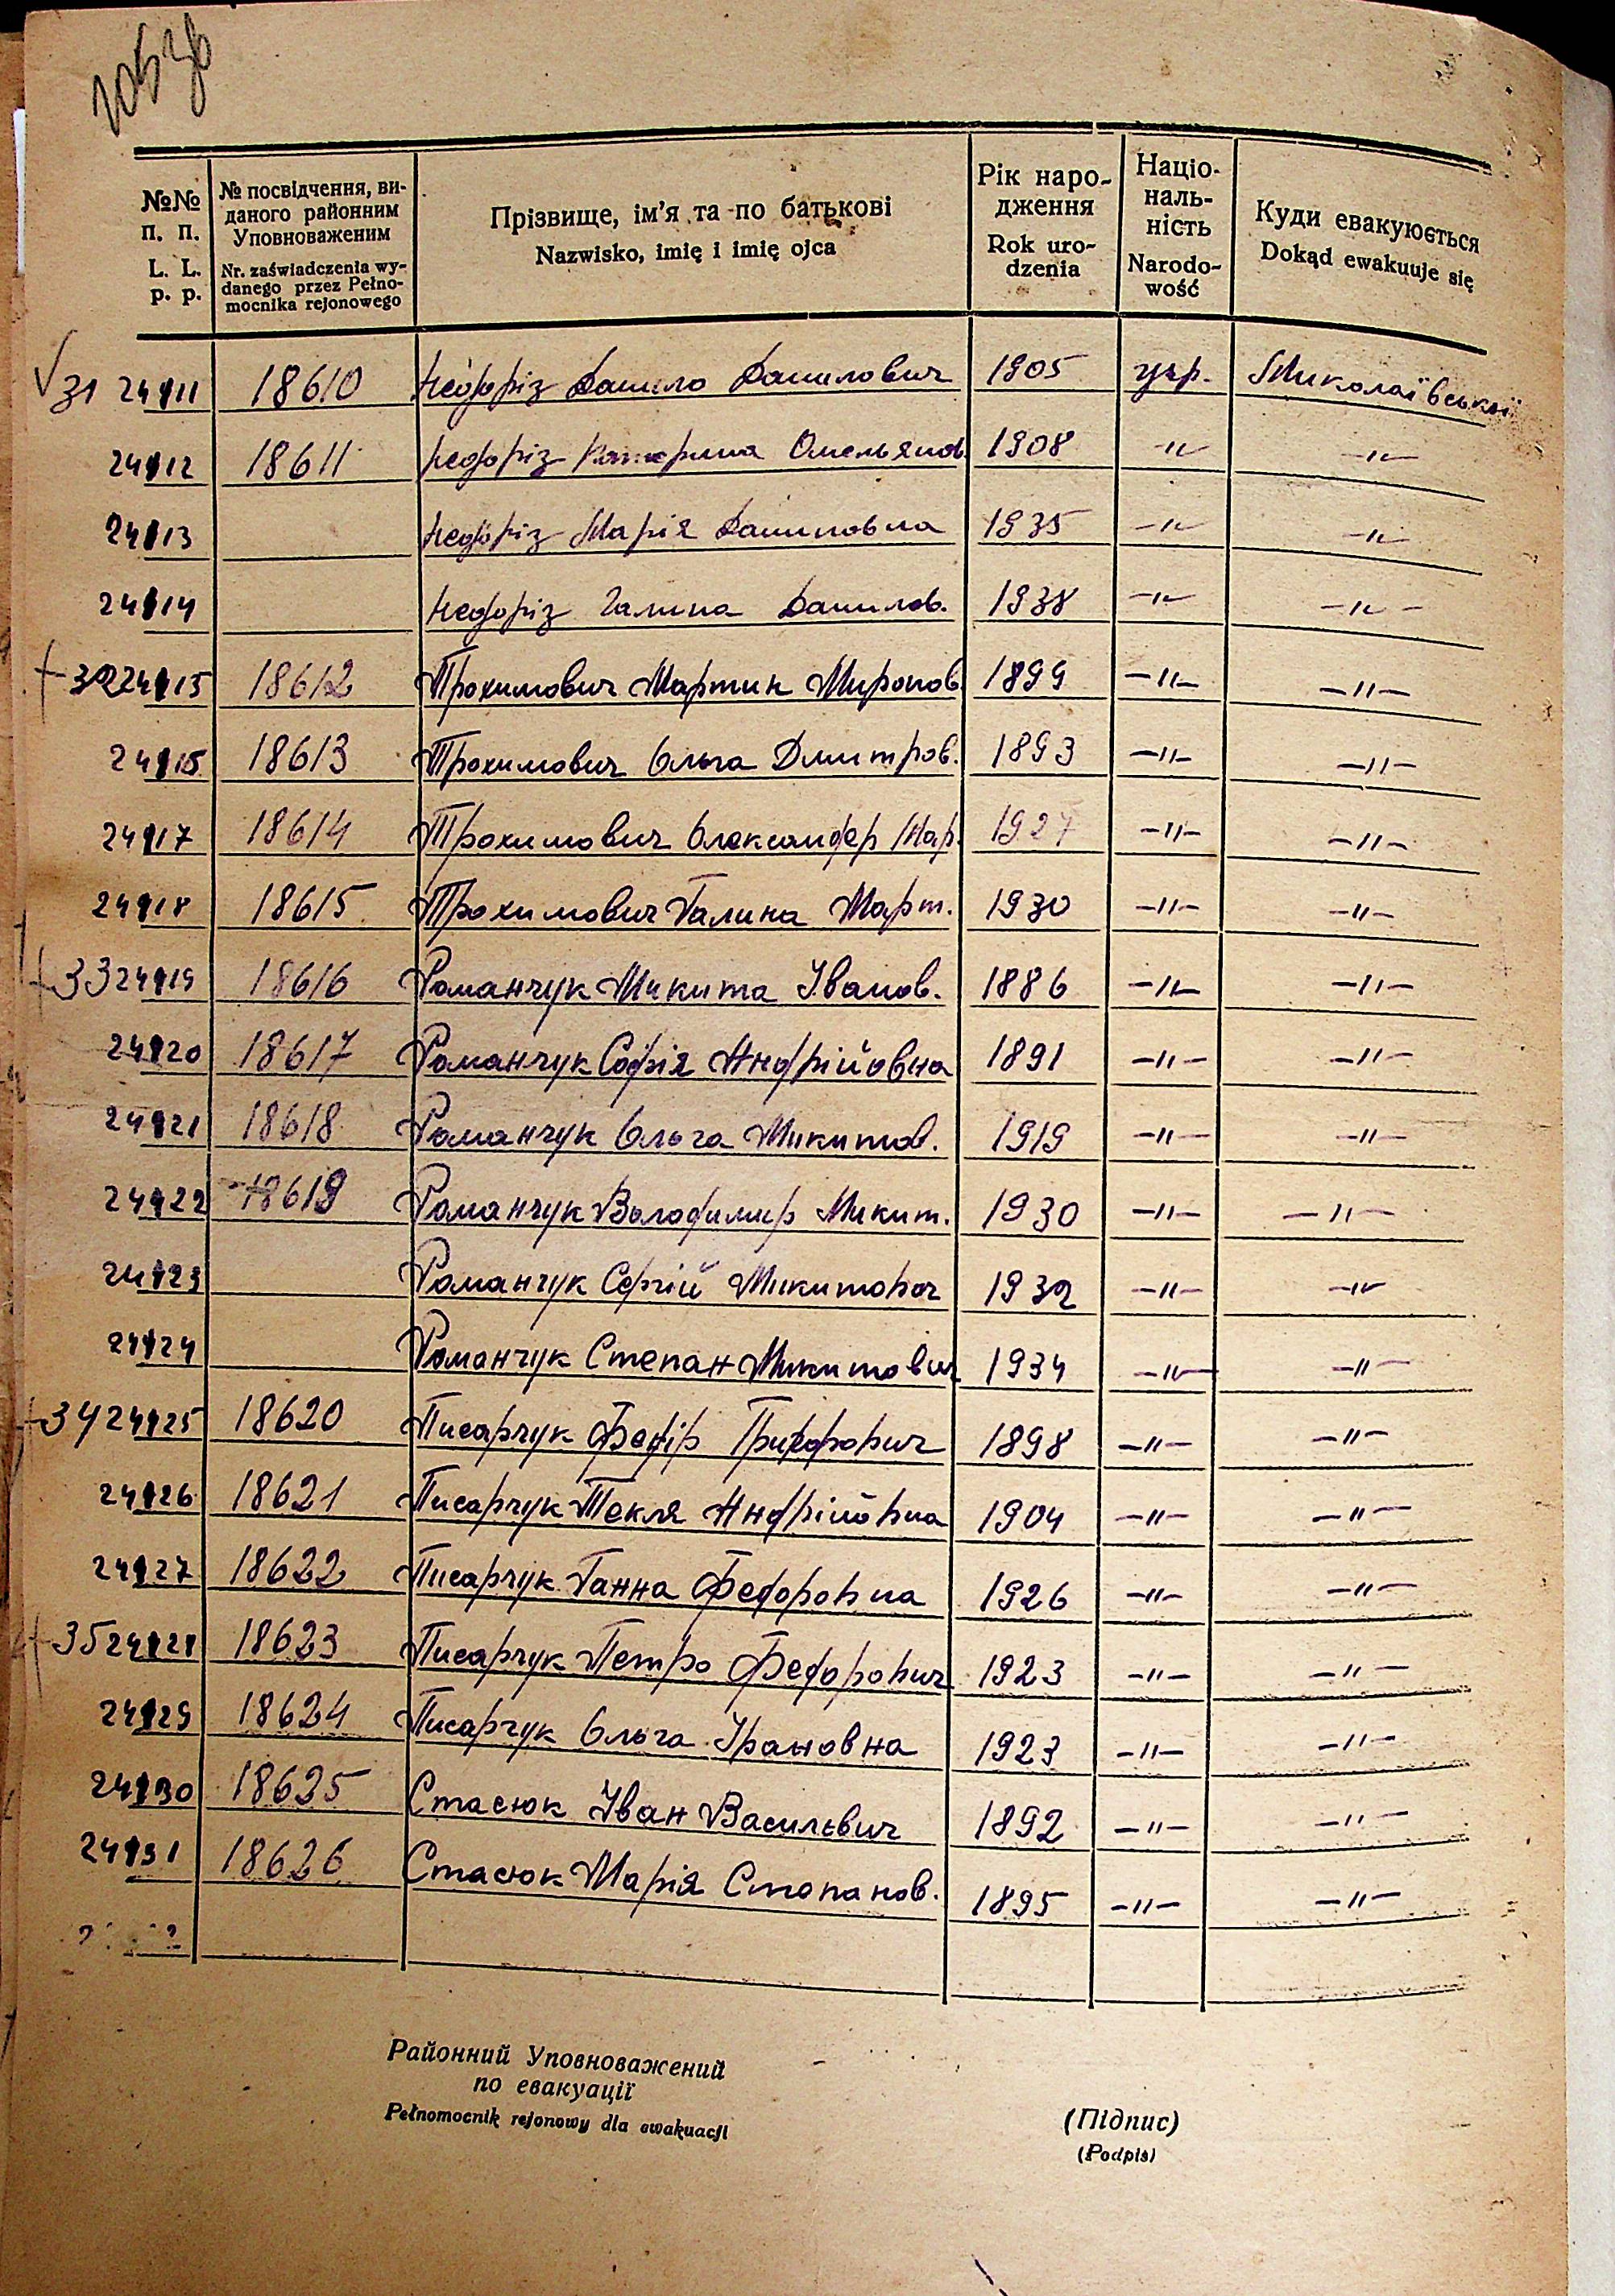 №№ п. п.
L. L. p. p.
№ посвідчення, ви-
даного районним
Уповноваженим
Nr. zaświadczenia wy-
danego przez Pełno-
mocnika rejonowego
Прізвище, ім'я та по батькові
Nazwisko, imię i imię ojca
Рік наро-
дження
Rok uro-
dzenia
Націо-
наль-
ність
Narodo-
wość
Куди евакуюється
Dokąd ewakuuje się
31 24111 18610 Недоріз Данило Данилович 1905 укр. Миколаївської
24112 18611 Недоріз Катерина Омельянов 1908 -"- -"-
24113 Недоріз Марія Даниловна 1935 -"- -"-
24114 Недоріз Галина Данилов. 1938 -"- -"-
32 24115 18612 Трохимович Мартин Миронов. 1899 -"- -"-
24116 18613 Трохимович Ольга Дмитров. 1893 -"- -"-
24117 18614 Трохимович Олександер Мар. 1927 -"- -"-
24118 18615 Трохимович Галина Март. 1930 -"- -"-
33 24119 18616 Романчук Микита Іванов. 1886 -"- -"-
24120 18617 Романчук Софія Андрійовна 1891 -"- -"-
24121 18618 Романчук Ольга Микитов. 1919 -"- -"-
24122 18619 Романчук Володимир Микит. 1930 -"- -"-
24123 Романчук Сергій Микитович 1932 -"- -"-
24124 Романчук Степан Микитович 1934 -"- -"-
34 24125 18620 Писарчук Федір Григорович 1898 -"- -"-
24126 18621 Писарчук Текля Андрійовна 1904 -"- -"-
24127 18622 Писарчук Ганна Федоровна 1926 -"- -"-
35 24128 18623 Писарчук Петро Федорович 1923 -"- -"-
24129 18624 Писарчук Ольга Івановна 1923 -"- -"-
24130 18625 Стасюк Іван Васильєвич 1892 -"- -"-
24131 18626 Стасюк Марія Степанов. 1895 -"- -"-
Районний Уповноважений
по евакуації
Pełnomocnik rejonowy dla ewakuacji
(Підпис)
(Podpis)